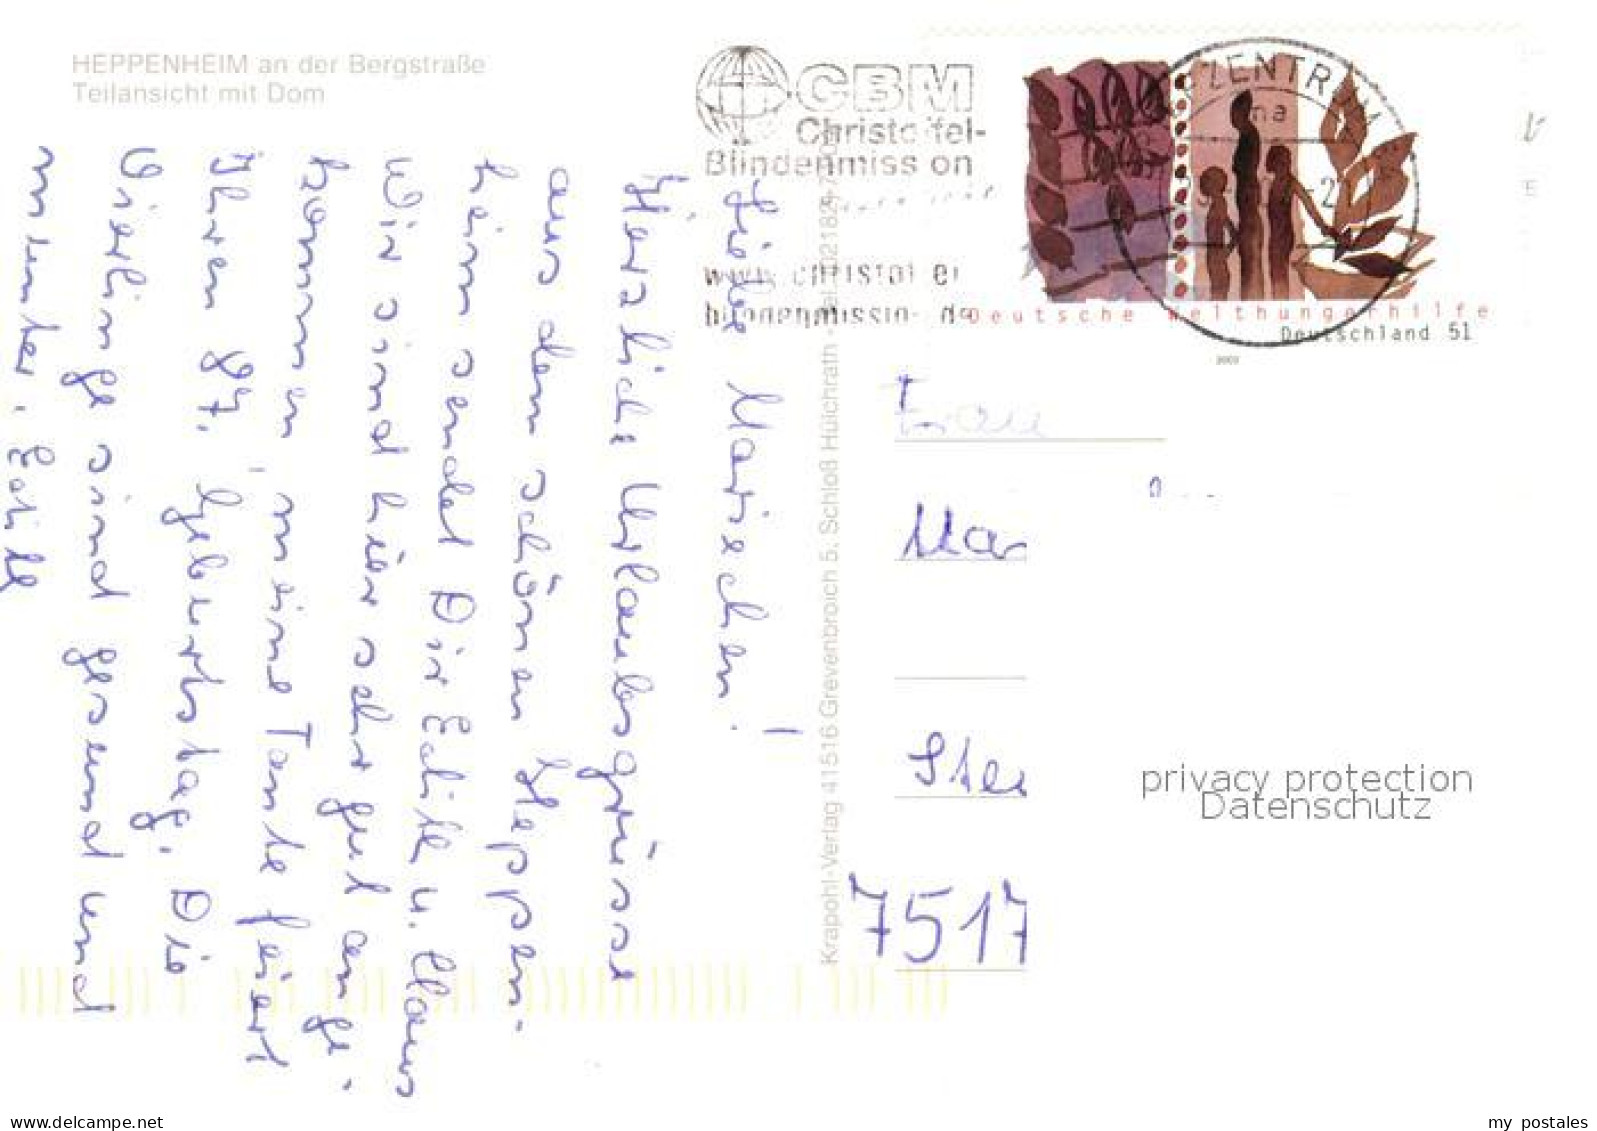 HEPPENHEIM an der Bergstraße
Teilansicht mit Dom
CBM
Christoffel-
Blindenmission
www.christoffel
blindenmission.de
ZENTRUM
Deutsche Welthungerhilfe
Deutschland 51
2002
Liebe Mariechen!
Herzliche Urlaubsgrüsse
aus dem schönen Heppen-
heim sendet Dir Edith u. Claus
Wir sind hier sehr gut ange-
kommen, meine Tante feiert
Ihren 87. Geburtstag. Die
Vierlinge sind gesund und
munter. Edith
Krapohl-Verlag 41516 Grevenbroich 5. Schloß Hülchrath
Frau
Mar
Ster
7517
privacy protection
Datenschutz
www.delcampe.net
my postales